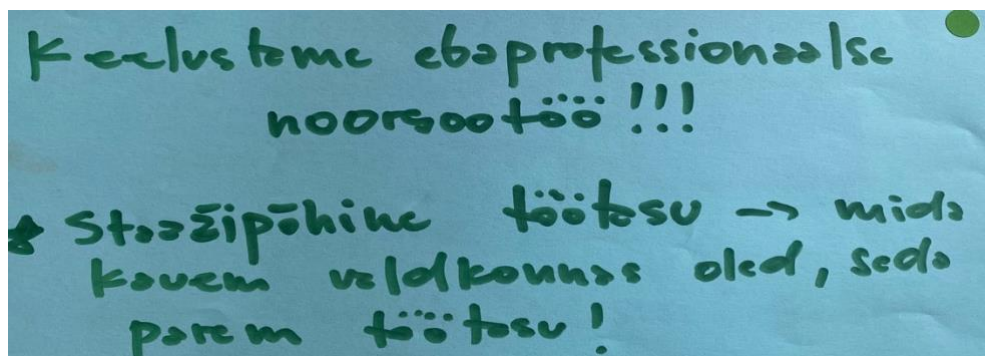 Keelustame ebaprofessionaalse
noorsootöö!!!
* Staažipõhine töötasu -> mida
kauem valdkonnas oled, seda
parem töötasu!